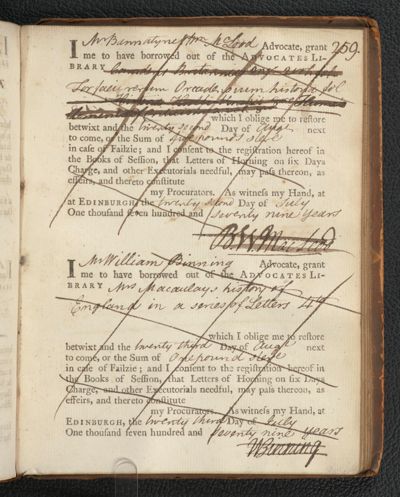 259.
I Mr Bannatyne Wm McLeod Advocate, grant
me to have borrowed out of the ADVOCATES LI-
BRARY
Torfaei rerum Orcadensium historia fol
which I oblige me to reſtore
betwixt and the twenty second Day of Augt next
to come, or the Sum of pounds
in caſe of Failzie; and I conſent to the regiſtration hereof in
the Books of Seſſion, that Letters of Horning on ſix Days
Charge, and other Executorials needful, may paſs thereon, as
effeirs, and thereto conſtitute
my Procurators. As witneſs my Hand, at
at EDINBURGH, the twenty second Day of July
One thouſand ſeven hundred and seventy nine years
B. W. Macleod
I Mr William Binning Advocate, grant
me to have borrowed out of the ADVOCATES LI-
BRARY Mrs Macaulays history of
England in a series of Letters 4to
which I oblige me to reſtore
betwixt and the twenty third Day of Augt next
to come, or the Sum of One pound
in caſe of Failzie; and I conſent to the regiſtration hereof in
the Books of Seſſion, that Letters of Horning on ſix Days
Charge, and other Executorials needful, may paſs thereon, as
effeirs, and thereto conſtitute
my Procurators. As witneſs my Hand, at
EDINBURGH, the twenty third Day of July
One thouſand ſeven hundred and seventy nine years
WBinning